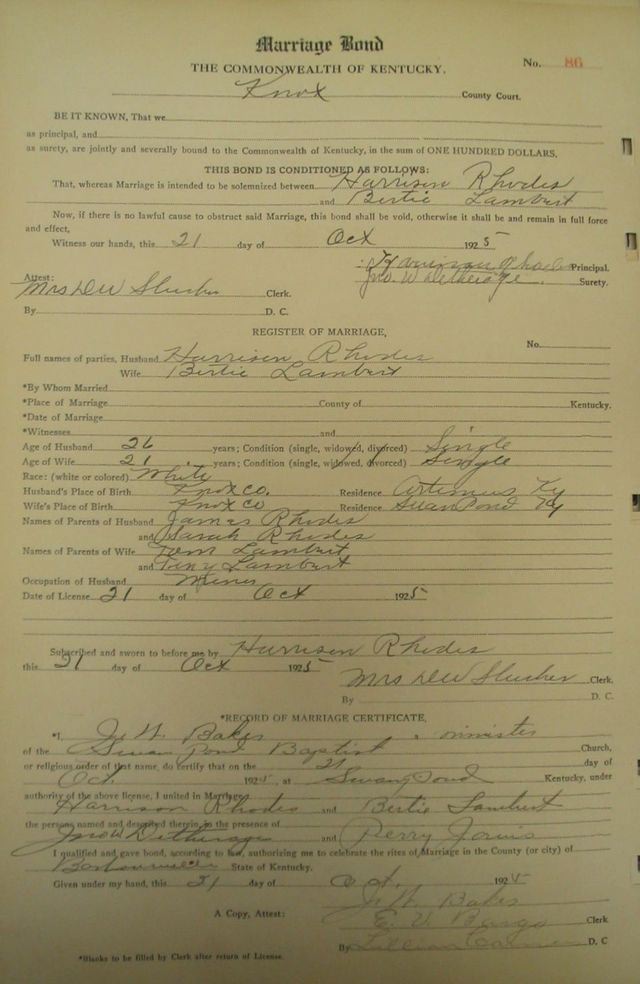 Marriage Bond
THE COMMONWEALTH OF KENTUCKY.
No. 86
Knox County Court.
BE IT KNOWN, That we
as principal, and
as surety, are jointly and severally bound to the Commonwealth of Kentucky, in the sum of ONE HUNDRED DOLLARS.
THIS BOND IS CONDITIONED AS FOLLOWS:
That, whereas Marriage is intended to be solemnized between Harrison Rhodes
and Bertie Lambert
Now, if there is no lawful cause to obstruct said Marriage, this bond shall be void, otherwise it shall be and remain in full force
and effect,
Witness our hands, this 21 day of Oct 1925
Harrison Rhodes Principal.
Jno. W Detherage Surety.
Attest:
Mrs DW Slusher Clerk.
By D. C.
REGISTER OF MARRIAGE,
No.
Full names of parties, Husband Harrison Rhodes
Wife Bertie Lambert
*By Whom Married
*Place of Marriage County of Kentucky.
*Date of Marriage
*Witnesses and
Age of Husband 26 years; Condition (single, widowed, divorced) Single
Age of Wife 21 years; Condition (single, widowed, divorced) Single
Race: (white or colored) White
Husband's Place of Birth Knox Co. Residence Artemus Ky
Wife's Place of Birth Knox Co Residence Swan Pond Ky
Names of Parents of Husband James Rhodes
and Sarah Rhodes
Names of Parents of Wife Tom Lambert
and Tiny Lambert
Occupation of Husband Miner
Date of License 21 day of Oct 1925
Subscribed and sworn to before me by Harrison Rhodes
this 21 day of Oct 1925
Mrs DW Slusher Clerk.
By D. C.
*RECORD OF MARRIAGE CERTIFICATE,
*I, W. Baker a minister
of the Swan Pond Baptist Church,
or religious order of that name, do certify that on the 21 day of
Oct. 1925, at Swan Pond Kentucky, under
authority of the above license, I united in Marriage
Harrison Rhodes and Bertie Lambert
the persons named and described therein, in the presence of
Jno W Detherage and Perry
I qualified and gave bond, according to law, authorizing me to celebrate the rites of Marriage in the County (or city) of
State of Kentucky.
Given under my hand, this 21 day of Oct. 1925
W. Baker
A Copy, Attest: E. V. Bargo Clerk
By Lillian D. C
*Blanks to be filled by Clerk after return of License.